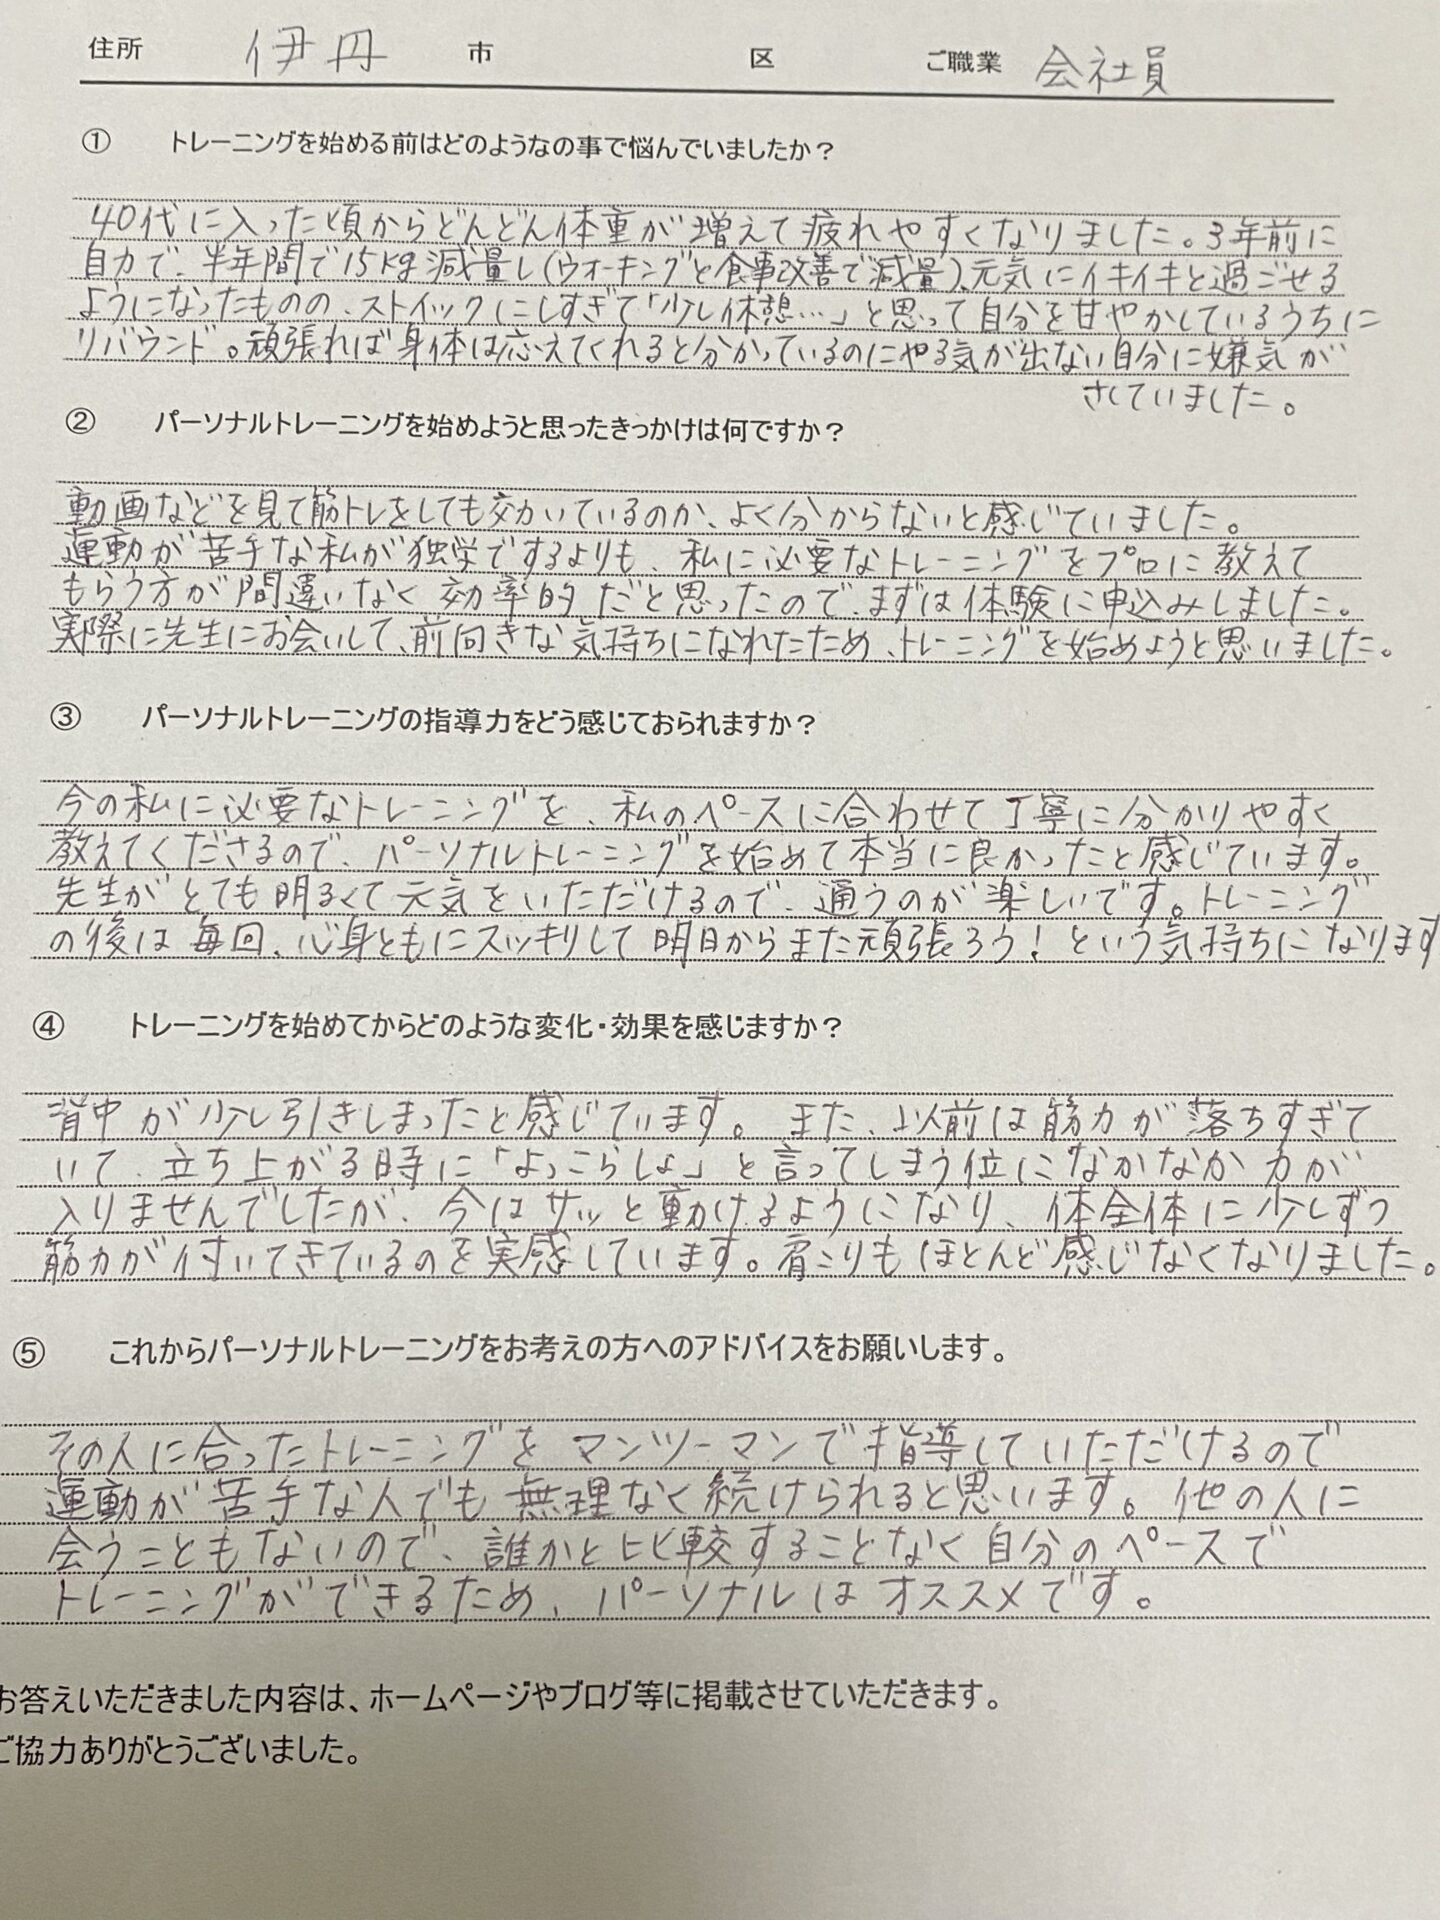 住所 伊丹 市 区 ご職業 会社員
① トレーニングを始める前はどのようなの事で悩んでいましたか？
40代に入った頃からどんどん体重が増えて疲れやすくなりました。3年前に
自力で、半年間で15kg減量し(ウオーキングと食事改善で減量)、元気にイキイキと過ごせる
ようになったものの、ストイックにしすぎて「少し休憩…」と思って自分を甘やかしているうちに
リバウンド。頑張れば身体は応えてくれると分かっているのにやる気が出ない自分に嫌気が
さしていました。
② パーソナルトレーニングを始めようと思ったきっかけは何ですか？
動画などを見て筋トレをしても効いているのか、よく分からないと感じていました。
運動が苦手な私が独学でするよりも、私に必要なトレーニングをプロに教えて
もらう方が間違いなく効率的だと思ったので、まずは体験に申込みしました。
実際に先生にお会いして、前向きな気持ちになれたため、トレーニングを始めようと思いました。
③ パーソナルトレーニングの指導力をどう感じておられますか？
今の私に必要なトレーニングを、私のペースに合わせて丁寧に分かりやすく
教えてくださるので、パーソナルトレーニングを始めて本当に良かったと感じています。
先生がとても明るくて元気をいただけるので、通うのが楽しいです。トレーニング
の後は毎回、心身ともにスッキリして明日からまた頑張ろう！という気持ちになります
④ トレーニングを始めてからどのような変化・効果を感じますか？
背中が少し引きしまったと感じています。また、以前は筋力が落ちすぎて
いて、立ち上がる時に「よっこらしょ」と言ってしまう位になかなか力が
入りませんでしたが、今はサッと動けるようになり、体全体に少しずつ
筋力が付いてきているのを実感しています。肩こりもほとんど感じなくなりました。
⑤ これからパーソナルトレーニングをお考えの方へのアドバイスをお願いします。
その人に合ったトレーニングをマンツーマンで指導していただけるので
運動が苦手な人でも無理なく続けられると思います。他の人に
会うこともないので、誰かと比較することなく自分のペースで
トレーニングができるため、パーソナルはオススメです。
お答えいただきました内容は、ホームページやブログ等に掲載させていただきます。
ご協力ありがとうございました。